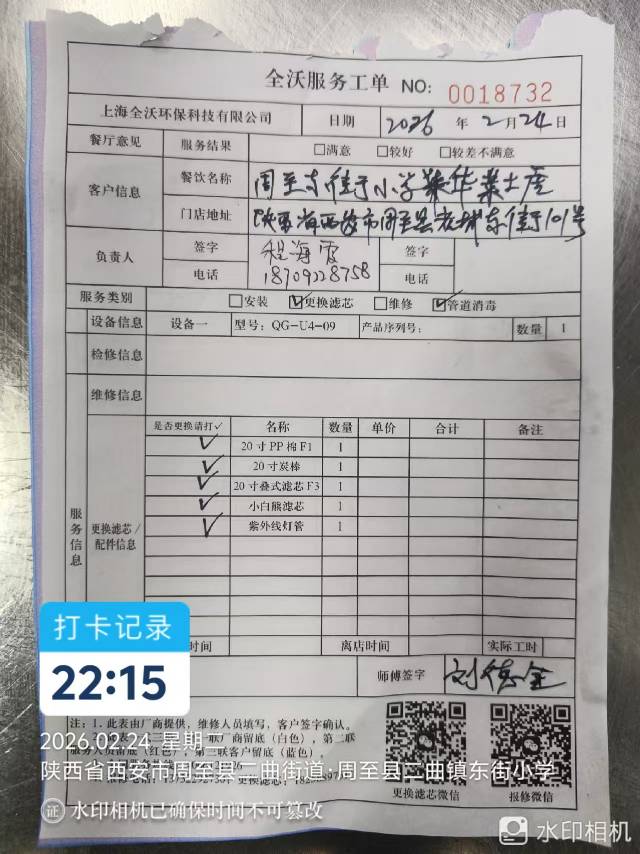 全沃服务工单 NO: 0018732
上海全沃环保科技有限公司 日期 2026 年 2 月 24 日
餐厅意见 服务结果 □满意 □较好 □较差不满意
客户信息 餐饮名称 周至东街小学
门店地址 陕西省西安市周至县 东街101号
负责人 签字 程海霞 签字
电话 18709228758 电话
服务类别 □安装 ☑更换滤芯 □维修 ☑管道消毒
设备信息 设备一 型号: QG-U4-09 产品序列号: 数量 1
检修信息
维修信息
服务信息
更换滤芯/配件信息
是否更换请打✓ 名称 数量 单价 合计 备注
✓ 20寸PP棉F1 1
✓ 20寸炭棒 1
✓ 20寸叠式滤芯F3 1
✓ 小白熊滤芯 1
✓ 紫外线灯管 1
时间 离店时间 实际工时
师傅签字 刘德全
注: 1. 此表由厂商提供, 维修人员填写, 客户签字确认。
联厂商留底(白色), 第二联
服务人员留底(红色), 第三联客户留底(蓝色)。
更换滤芯微信 报修微信
打卡记录
22:15
2026.02.24 星期二
陕西省西安市周至县二曲街道·周至县二曲镇东街小学
证 水印相机已确保时间不可篡改
水印相机